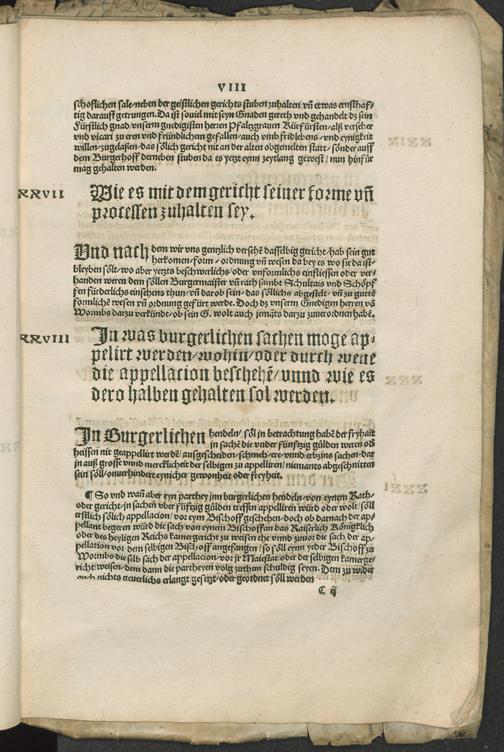 VIII
schoflichen sale/neben der geistlichen gerichts stuben zuhalten vñ etwas ernsthaf/
tig darauff getrungen. Da ist souil mit seyn Gnaden gereth vnd gehandelt dz sein
Fürstlich gnad vnserm gnedigisten herren Pfalzgrauen Kürfürsten/alß verseher
vnd vicari zu eren vnd fründlichem gefallen/auch vmb fridlebens/vnd eynigkeit
willen zugelaßen/das sölich gericht nit an der alten obgemelten statt/sonder auff
dem Bürgerhoff derneben stuben da es yetzt eynn zeytlang gewest/nun hinfür
mag gehalten werden.
XXVII
Wie es mit dem gericht seiner forme vñ
processen zuhalten sey.
Vnd nach dem wir vns gentzlich versehē dasselbig gericht/hab sein gut
herkomen/form/ordnung vñ wesen da bey es wo sie da ist/
bleyben söllt/wo aber yetzts beschwerlichs/oder vnformlichs einfliessen oder ver/
handen weren dem söllen Burgermaister vñ rath sambt Schultais vnd Schöpf
fen fürderlichs einsehens thun/vñ darob sein/das söllichs abgestelt/vñ zu gutē
formlichē wesen vñ ordnung gefürt werde. Doch dz vnserm Gnedigen herren vō
Wormbs darzu verkündt/ob sein G. wolt auch jemāts darzu zuuerordnen habē.
XXVIII
In was burgerlichen sachen moge ap/
pelirt werden/wohin/oder durch wene
die appellacion beschehē/vnnd wie es
dero halben gehalten sol werden.
In Burgerlichen hendeln/söll in betrachtung habē der fryhait
in sachē die vnder fünfftzig gülden wern ob
heissen nit geappellirt werdē/ausgescheiden/schmeh/ere/vnnd erbzins sachen/dar
in auß grosse vnnd mercklicheit der selbigen zu appelliren/niemants abgeschnitten
sein söll/onuerhindert eynicher gewonheit oder freyheit.
¶ So vnd wañ aber eyn parthey jnn burgerlichen hendeln/von eynem Rath/
oder gericht/in sachen vber fünfftzig gülden treffen appelliren würd oder wolt/söll
erstlich sölich appellacion/vor eym Bischoff geschehen/doch ob darnach der ap/
pellant begeren würd die sach von eynem Bischoff an das Kaiserlich Königklich
oder des heyligen Reichs kamergericht zu weisen ehe vnnd zuuor die sach der ap/
pellation vor dem selbigen Bischoff angefangen/so söll eynn yeder Bischoff zu
Wormbs die selb sach der appellacion/vor jr Maiestat/oder der selbigen kamerge/
richt/weisen/dem dann die partheyen volg zuthun schuldig seyen. Dem zu wider
auch nichts neuerlichs erlangt gesetzt/oder geordnet söll werden
C ij